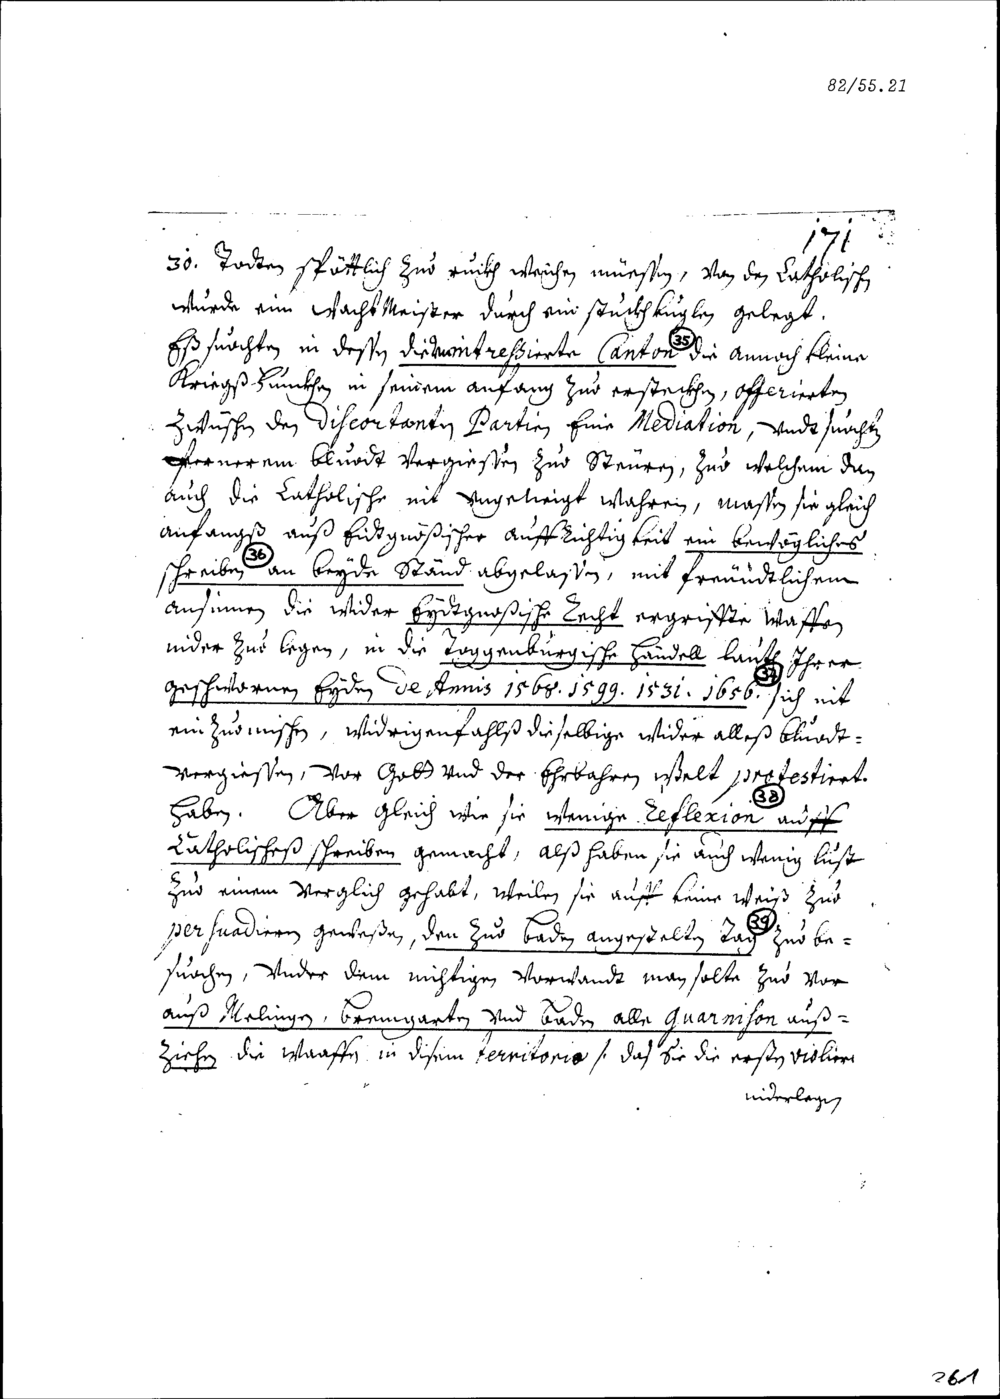 82/55.21
171
30. Todten spöttlich zuo ruckh weichen müessen, von den Catholisch
wurde ein Wachtmeister durch ein stuckh kuglen gelegt.
Eß suochten in dessen die intressierte Canton 35 die annoch kleine
Kriegß Funckhen in seinem anfang zuo ersteckhen, offerierten
zwüschen den discortanten Partien Eine Mediation, undt suochten
fernerem bluodt vergiessen zuo Steüren, zuo welchem dan
auch die Catholische nit ungeneigt wahren, massen sie gleich
anfangß auß Eidtgnößischer Auffrichtigkeit ein bewögliches
schreiben 36 an beyde Ständ abgelassen, mit freündtlichem
ansinnen die wider Eydtgnoßische Recht ergriffte Waffen
nider zuo legen, in die Toggenburgische Händell lauth Ihrer
geschwornen Eyden de Annis 1568. 1599. 1531. 1656. 37 sich nit
ein zuo mischen, widrigenfahlß dieselbige wider alleß bluodt-
vergiessen, vor Gott und der Ehrbahren Welt protestiert
haben. Aber gleich wie sie wenige Reflexion 38 auff
Catholisches schreiben gemacht, alß haben sie auch wenig lust
zuo einem verglich gehabt, weilen sie auff keine weiß zuo
persuadieren geweßen, den zuo Baden angestelten Tag 39 zuo be=
suochen, under dem nichtigen vorwandt man solte zuo vor
auß Melingen, Bremgarten und Baden alle Guarnison auß=
ziehen die Waaffen in disem territorio /: daß Sie die ersten violiert
niderlegen
261